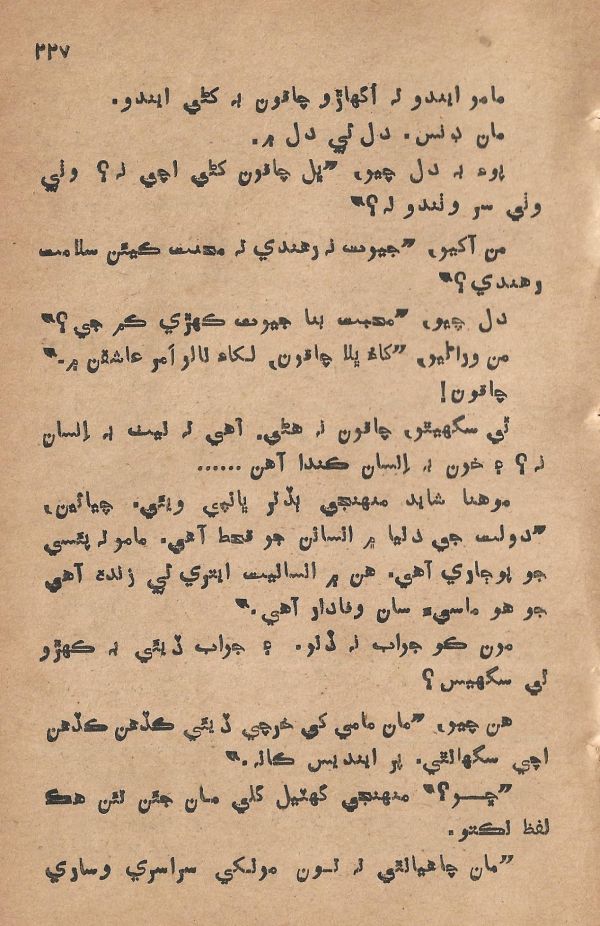 ٢٢٧
مامو ايندو تہ اگهاڙو چاقون بہ کڻي ايندو.
مان ڊنس. دل ئي دل ۾.
پوءِ بہ دل چيو، ”ڀل چاقون کڻي اچي نہ؟ وٺي
وٺي سر وٺندو نہ؟“
من آکيو، ”جيوت نہ رهندي تہ محبت ڪيئن سلامت
رهندي؟“
دل چيو، ”محبت بنا جيوت ڪهڙي ڪم جي؟“
من وراڻيو، ”کاءُ ڀلا چاقون، لکاءِ نالو اَمر عاشقن ۾.“
چاقون!
ٿي سگهيٿو، چاقون نہ هڻي. آهي تہ نيٺ بہ اِنسان
نہ؟ ۽ خون بہ اِنسان ڪندا آهن ......
موهنا شايد منهنجي ٻڏتر ڀانپي ويئي. چيائين،
”دولت جي دنيا ۾ انسانن جو قحط آهي. مامو تہ پئسي
جو پوڄاري آهي. هن ۾ انسانيت ايتري ئي زندہ آهي
جو هو ماسيءَ سان وفادار آهي.“
مون ڪو جواب نہ ڏنو. ۽ جواب ڏيئي بہ ڪهڙو
ٿي سگهيس؟
هن چيو، ”مان مامي کي خرچي ڏيئي ڪڏهن ڪڏهن
اچي سگهانٿي. پر اينديس ڪانہ.“
”ڇـــو؟“ منهنجي گهٽيل گلي مان جئن تئن هڪ
لفظ نڪتو.
”مان چاهيانٿي تہ تـون مونکي سراسري وساري